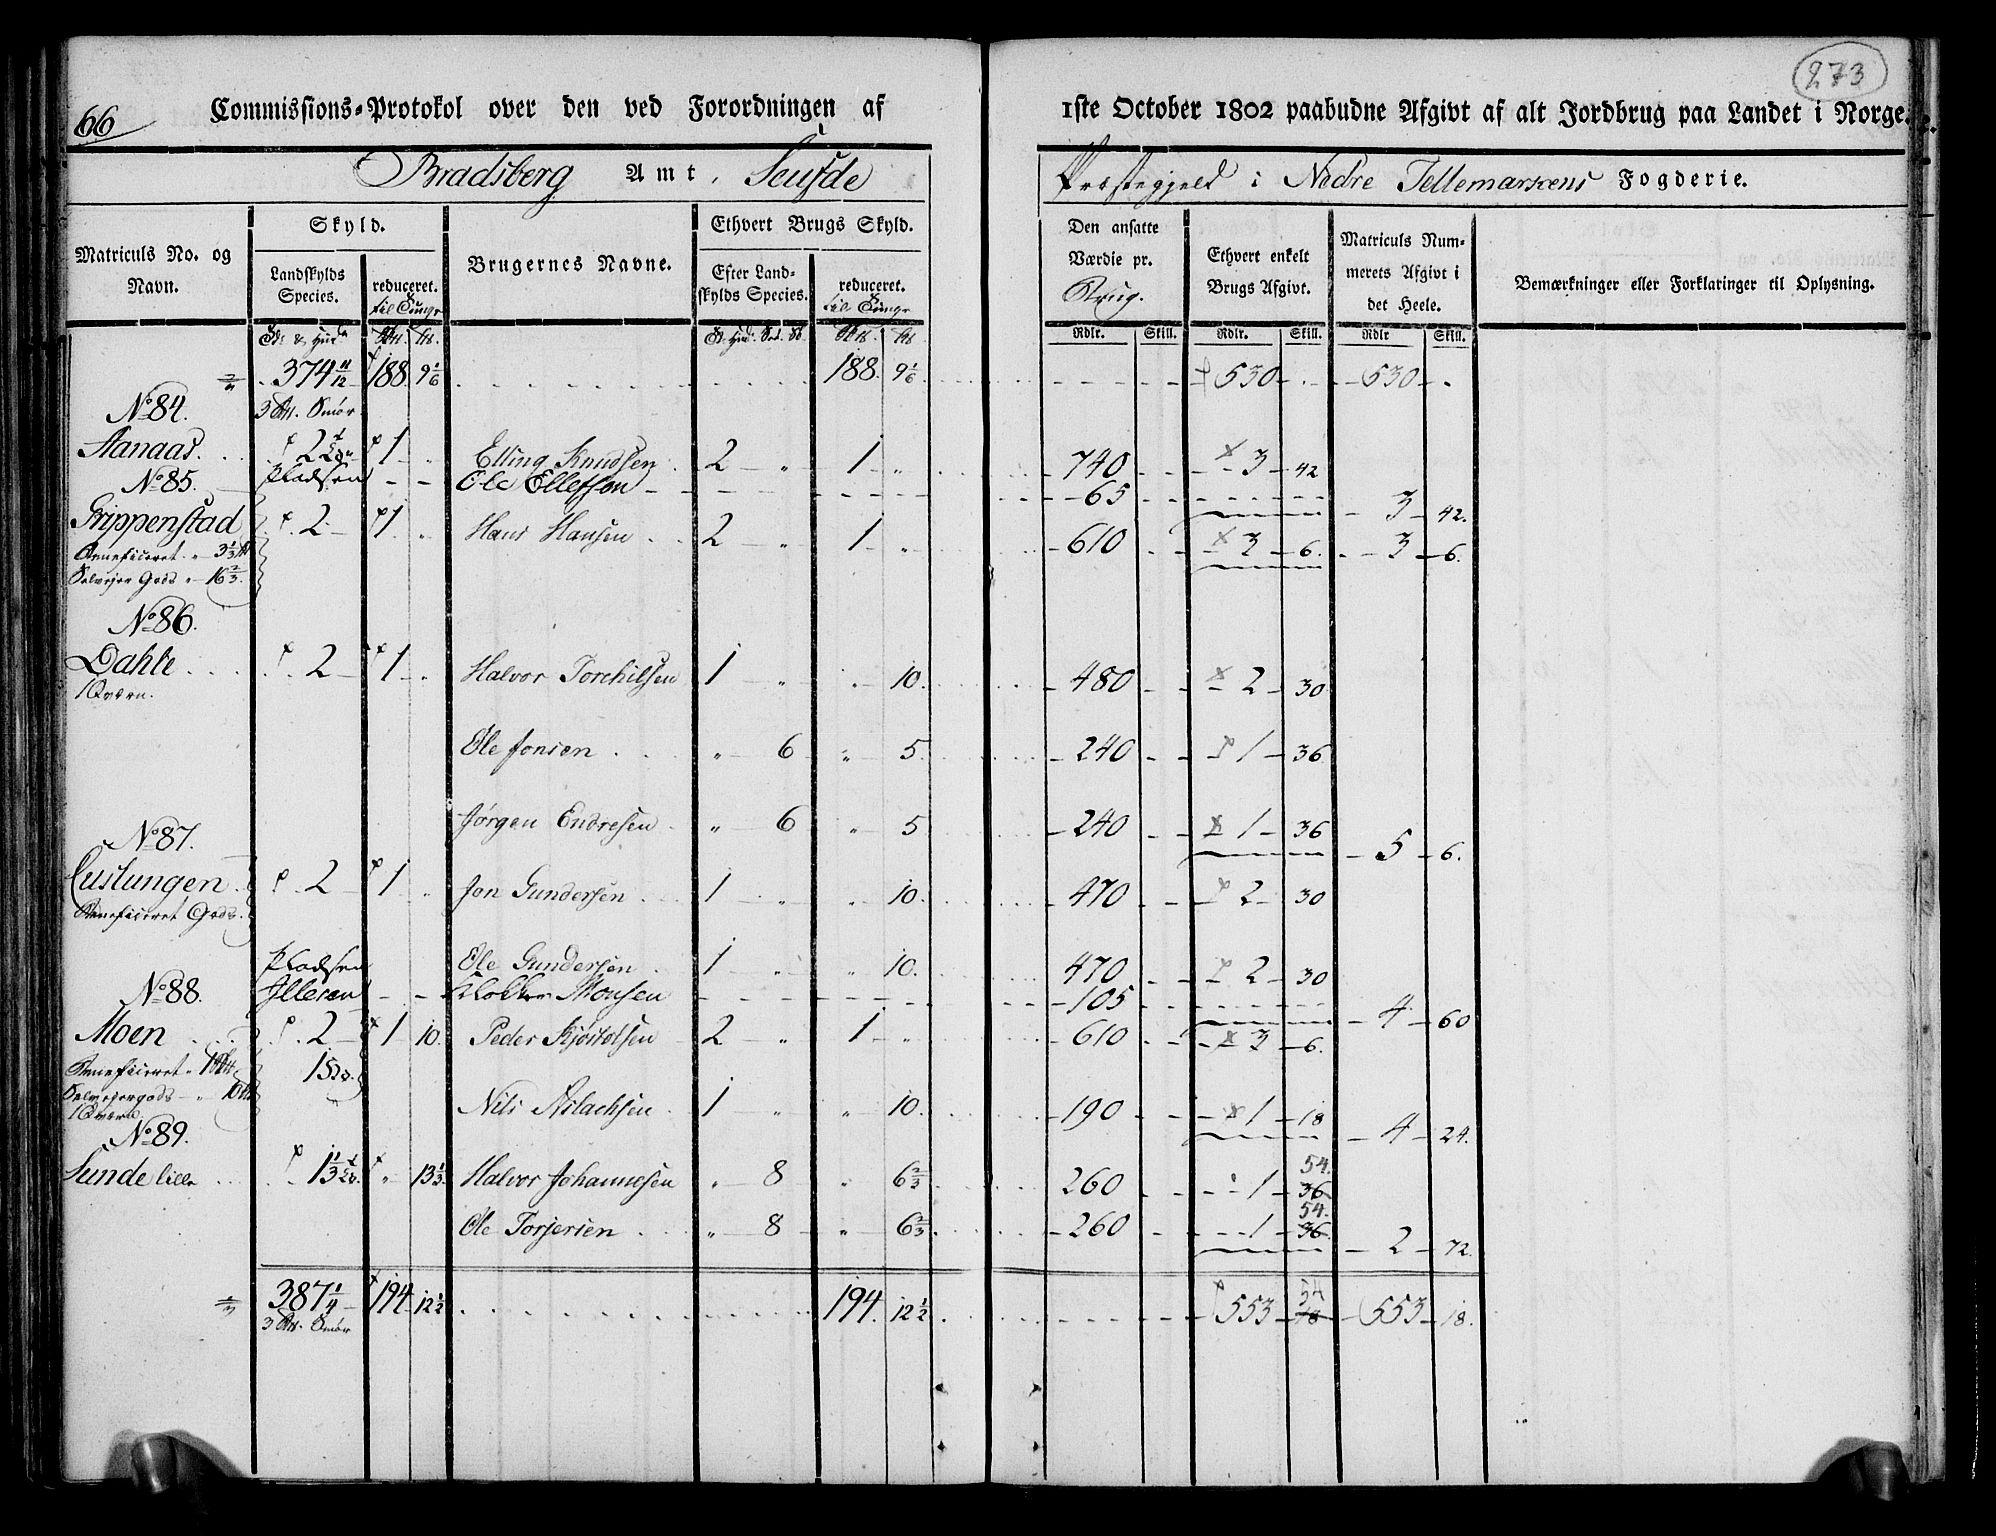 66
273
Commissions-Protokol over den ved Forordningen af 1ste October 1802 paabudne Afgivt af alt Jordbrug paa Landet i Norge.
Bradsberg Amt, Seufde Præstegjeld i Nedre Tellemarkens Fogderie.
Matriculs No. og Navn.
Skyld.
Landskylds Species.
reduceret. til Tunge
Brugernes Navne.
Ethvert Brugs Skyld.
Efter Landskylds Species.
reduceret. til Tunge
Den ansatte Værdie pr. Brug.
Ethvert enkelt Brugs Afgivt.
Matriculs Nummerets Afgivt i det Heele.
Bemærkninger eller Forklaringer til Oplysning.
Rdlr. Skill. Rdlr. Skill. Rdlr Skill.
374 11/12 188. 9 1/6 188. 9 1/6 530 - 530 -
3 Smør
No 84.
Aanaas. 2 1 Elling Knudsen 2 " 1 " 740 3 42
Pladsen Ole Ellefsen 65 3 42.
No 85.
Grippenstad 2 1 Hans Hansen 2 " 1 " 610 3 6. 3 6.
Beneficeret 3 1/3
Selvejer Gods 16 2/3.
No 86.
Dahle 2 1 Halvor Torchilsen 1 " " 10. 480 2 30
1 Qværn.
Ole Jonsen " 6 " 5. 240 1 36
Jørgen Endresen " 6 " 5 240 1 36 5 6.
No 87.
Cuslungen 2 1 Jon Gundersen 1 " " 10. 470 2 30
Beneficeret Gods.
Ole Gundersen 1 " " 10. 470 2 30
Pladsen Monsen 105 4 60
No 88.
Moen 2 1 10. Peder Kjøstolsen 2 " 1 " 610 3 6.
Beneficeret 10
Selvejergods 10
1 Qværn
Nils Aslachsen 1 " " 10. 190 1 18 4 24.
No 89.
Sunde lille 1 1/3 " 13 1/3 Halvor Johannesen " 8 " 6 2/3 260 1 54. 36
Ole Torjersen " 8 " 6 2/3. 260 1 54. 36 2 72.
387 1/4 194. 12 1/2 194. 12 1/2 553 54 18 553 18.
3 Smør